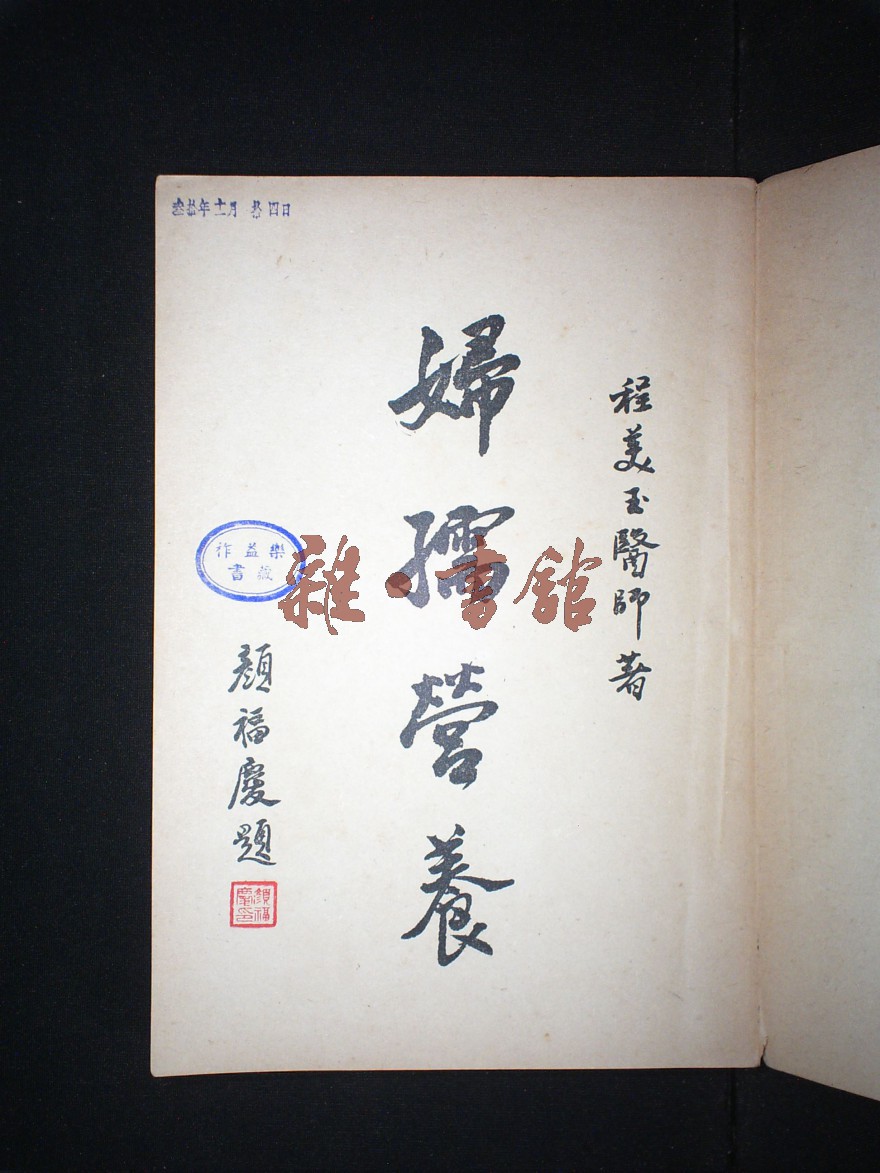 叁拾年十一月 拾四日
程美玉醫師著
婦孺營養
顏福慶題
顏福慶印
樂益作
藏書
雜·書舘